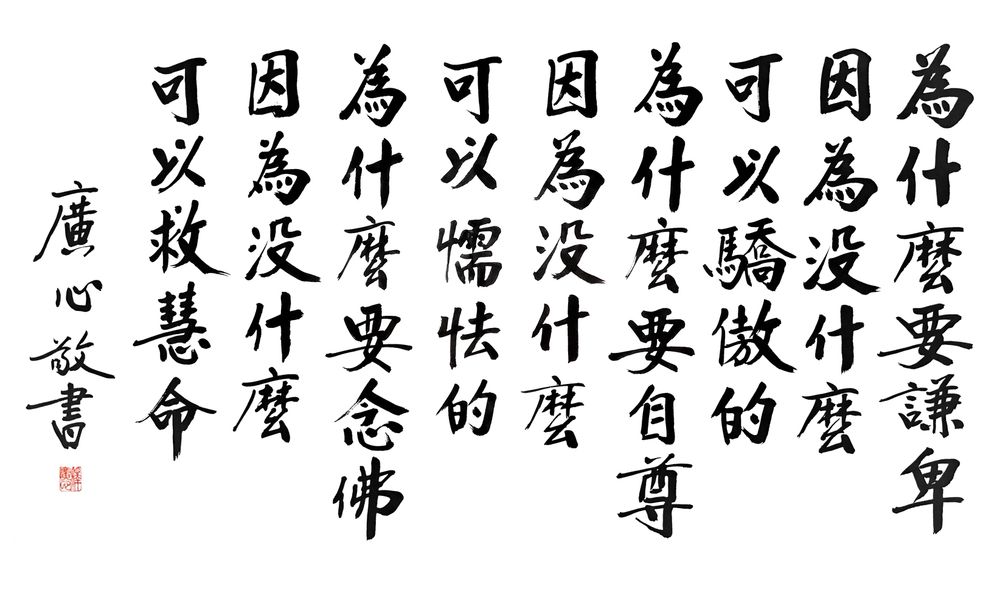 為什麼要謙卑
因為没什麼
可以驕傲的
為什麼要自尊
因為没什麼
可以懦怯的
為什麼要念佛
因為没什麼
可以救慧命
廣心敬書